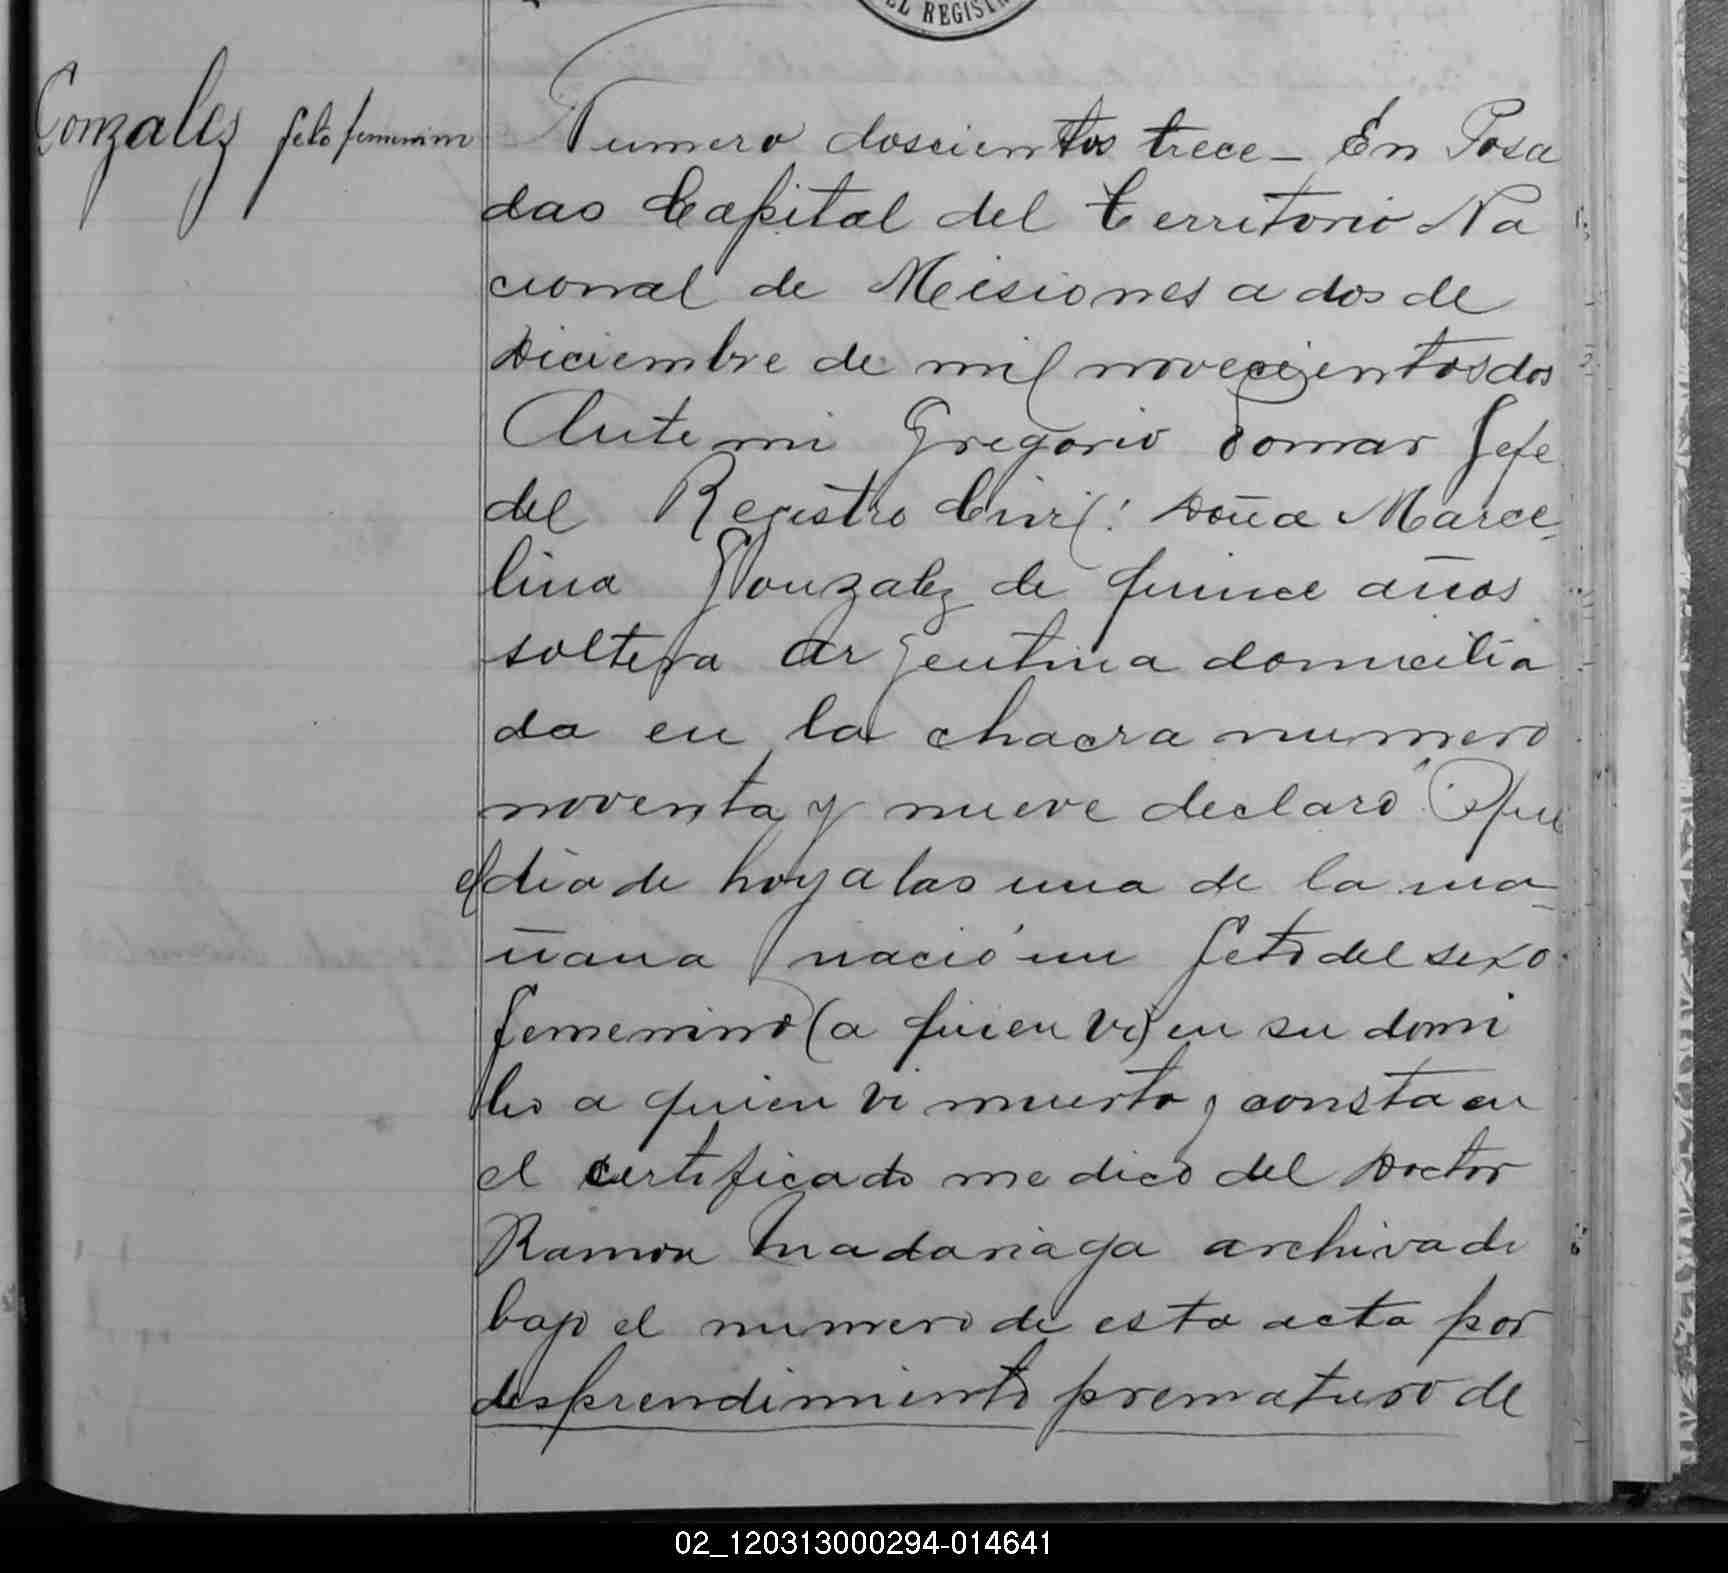 EL REGIST
Gonzalez feto femenino
Numero doscientos trece - En Posa
das Capital del Territorio Na
cional de Misiones a dos de
Diciembre de mil novecientos dos
Ante mi Gregorio Jefe
del Registro Civil: Doña Marce
lina Gonzalez de quince años
soltera argentina domicilia
da en la chacra numero
noventa y nueve declaró: Que
el dia de hoy a las una de la ma
ñana nació un feto del sexo
femenino (a quien vi) en su domi
lio a quien vi muerto y consta en
el certificado medico del Doctor
Ramon Madariaga archivado
bajo el numero de esta acta por
desprendimiento prematuro de
02_120313000294-014641